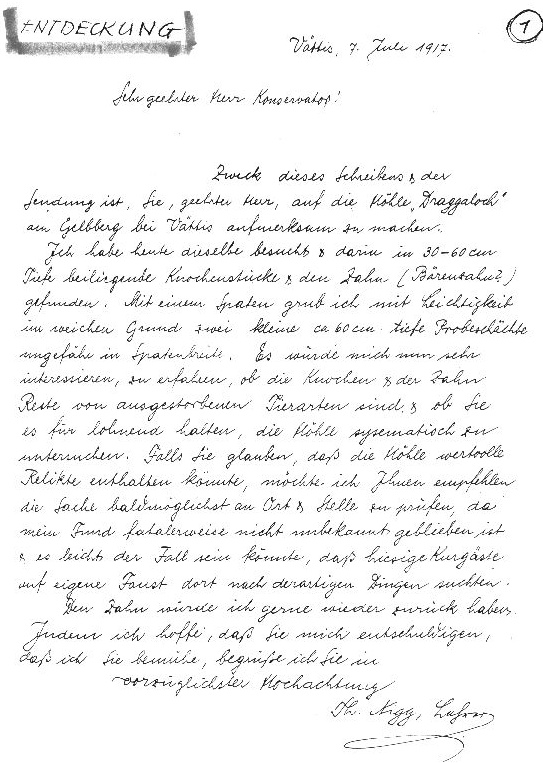 ENTDECKUNG
1
Vättis, 7. Juli 1917.
Sehr geehrter Herr Konservator!
Zweck dieses Schreibens & der
Sendung ist, Sie, geehrter Herr, auf die Höhle „Draggaloch"
am Gelbberg bei Vättis aufmerksam zu machen.
Ich habe heute dieselbe besucht & darin in 30-60 cm
Tiefe beiliegende Knochenstücke & den Zahn (Bärenzahn?)
gefunden. Mit einem Spaten grub ich mit Leichtigkeit
im weichen Grund zwei kleine ca 60 cm tiefe Probeschächte
ungefähr in Spatenbreite. Es würde mich nun sehr
interessieren, zu erfahren, ob die Knochen & der Zahn
Reste von ausgestorbenen Tierarten sind, & ob Sie
es für lohnend halten, die Höhle sysematisch zu
untersuchen. Falls Sie glauben, daß die Höhle wertvolle
Relikte enthalten könnte, möchte ich Ihnen empfehlen
die Sache baldmöglichst an Ort & Stelle zu prüfen, da
mein Fund fatalerweise nicht unbekannt geblieben ist
& es leicht der Fall sein könnte, daß hiesige Kurgäste
auf eigene Faust dort nach derartigen Dingen suchten.
Den Zahn würde ich gerne wieder zurück haben.
Indem ich hoffe, daß Sie mich entschuldigen,
daß ich Sie bemühe, begrüße ich Sie in
vorzüglichster Hochachtung
Th. Nigg, Lehrer